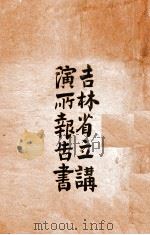 吉林省立講
演所報告書
mtoou.info